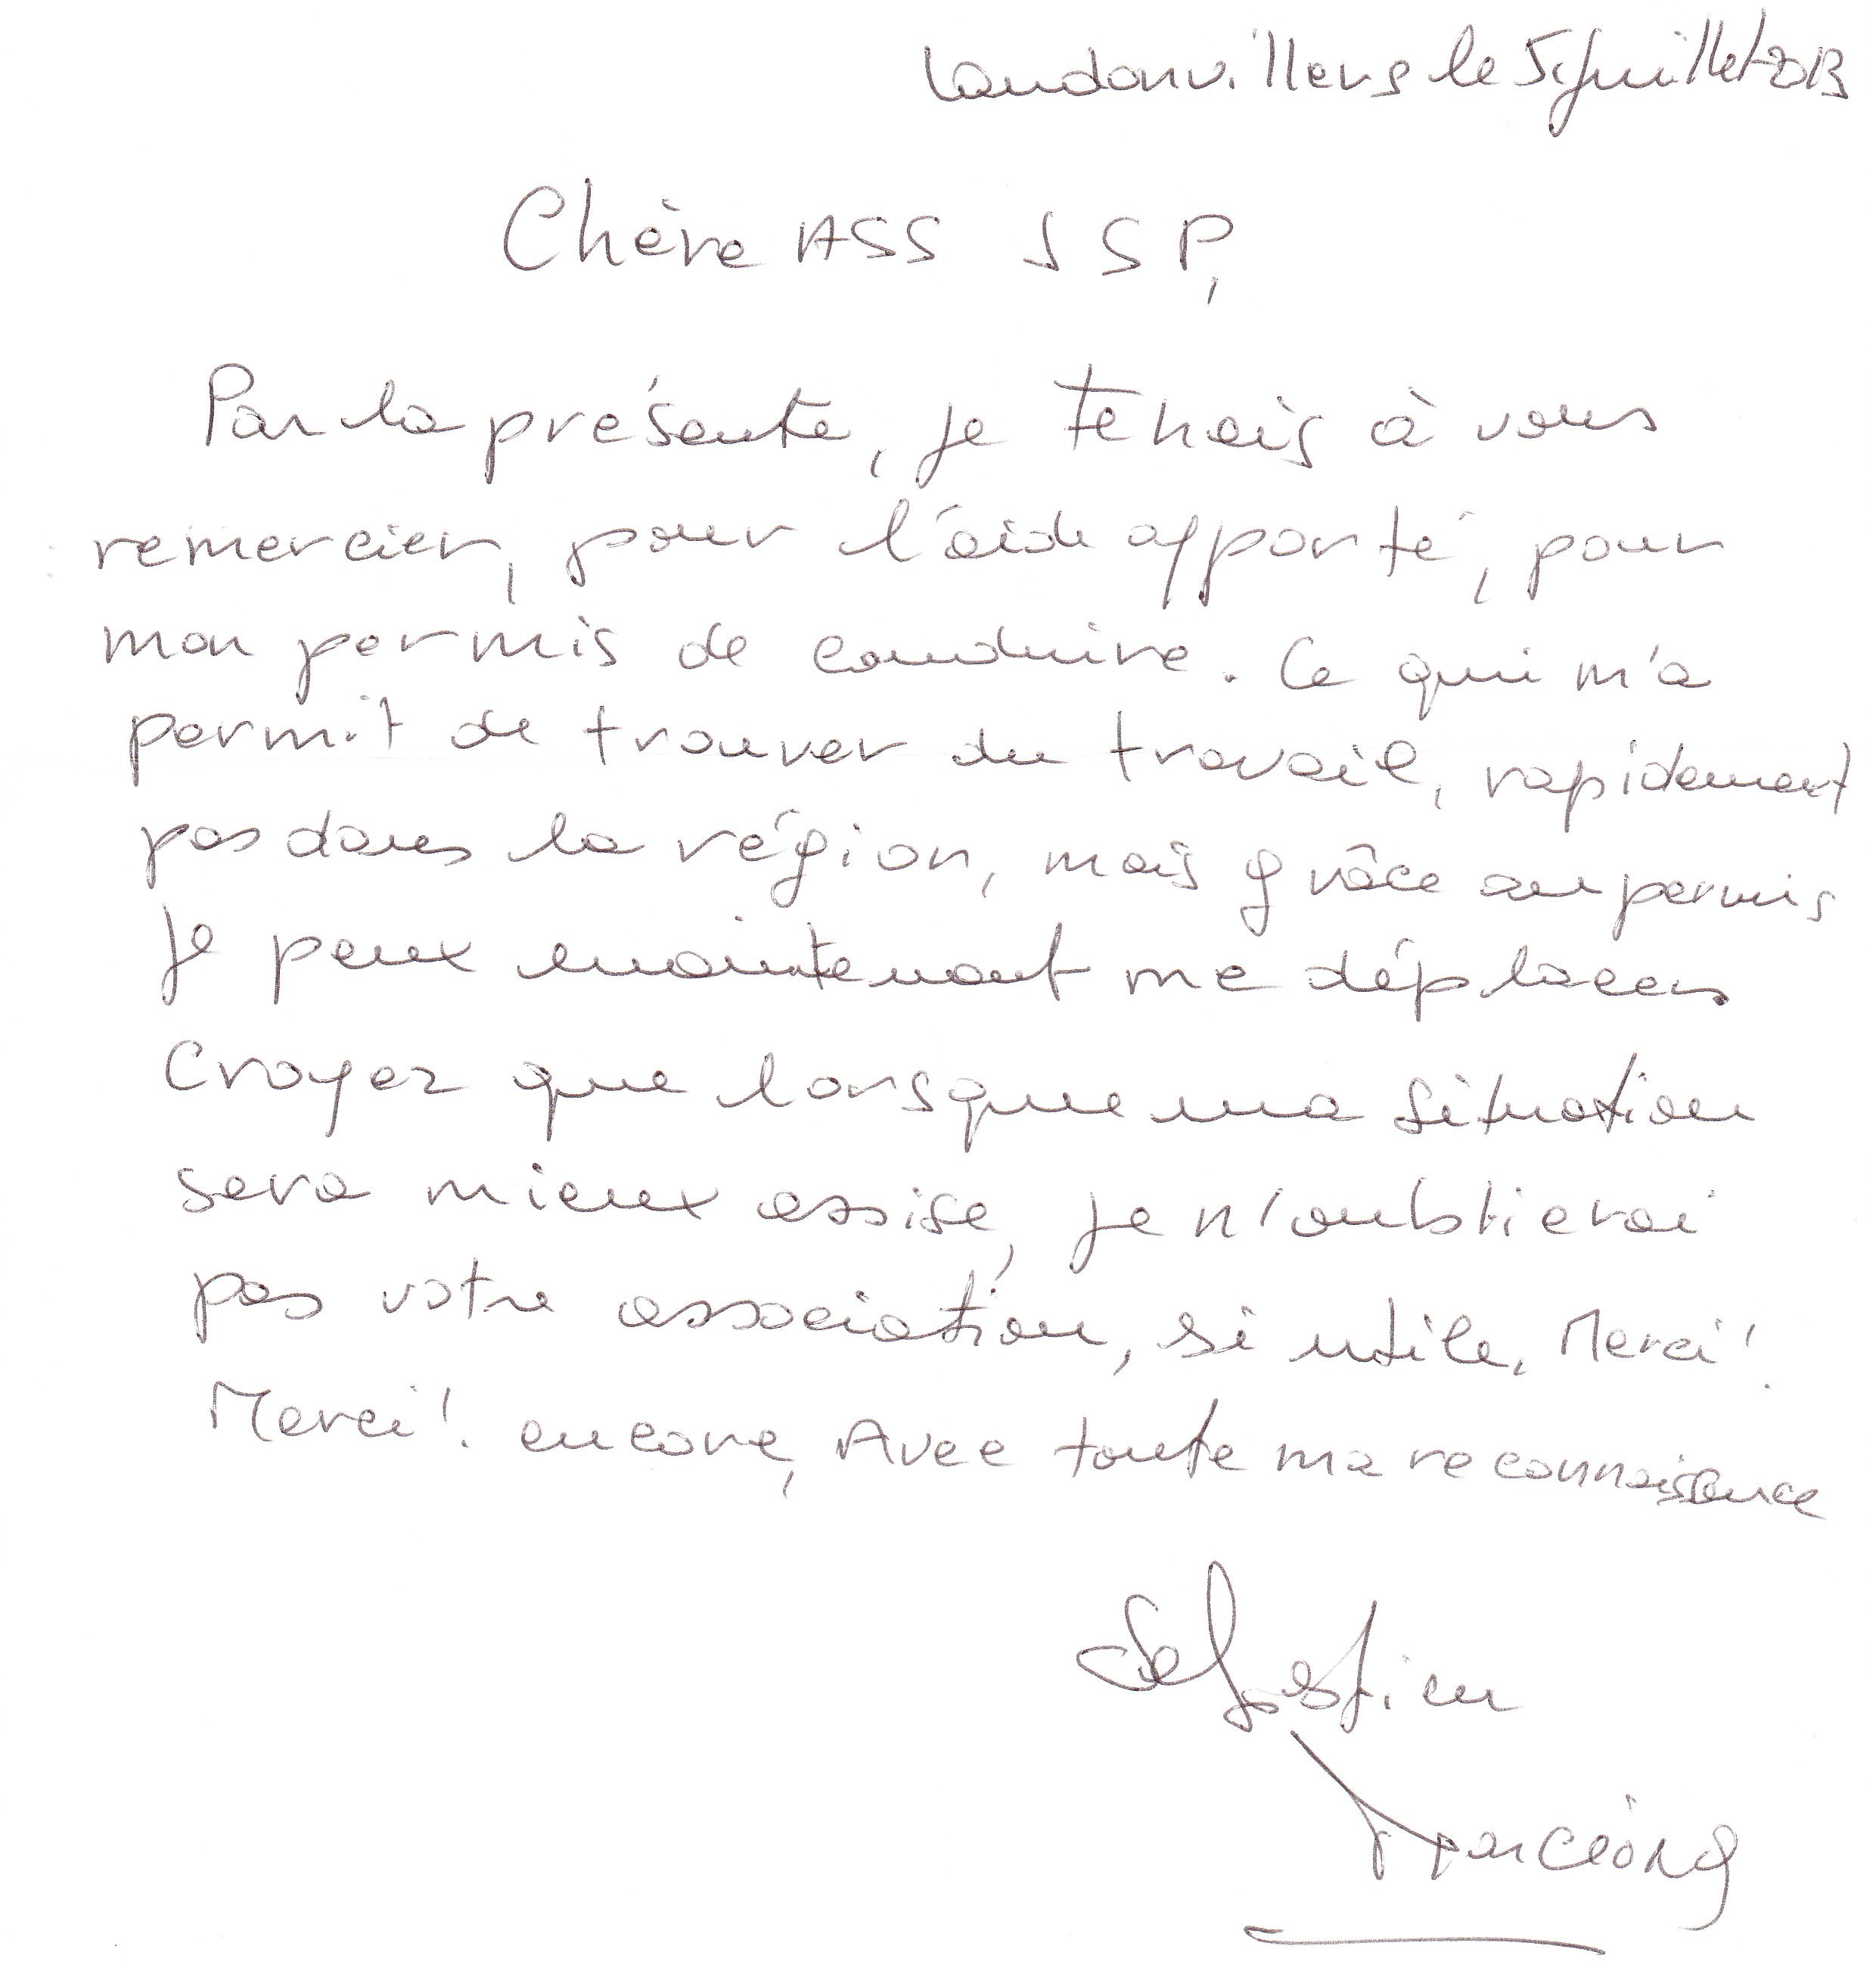 Landonvillers le 5 juillet 2013
Chère ASS JSP,
Par la présente, je tenais à vous
remercier, pour l'aide apporté, pour
mon permis de conduire. Ce qui m'a
permit de trouver du travail, rapidement
pas dans la région, mais grâce au permis
Je peux maintenant me déplacer
Croyez que lorsque ma situation
sera mieux assise, je n'oublierai
pas votre association, si utile. Merci!
Merci! encore, Avec toute ma reconnaissance
Sebastien